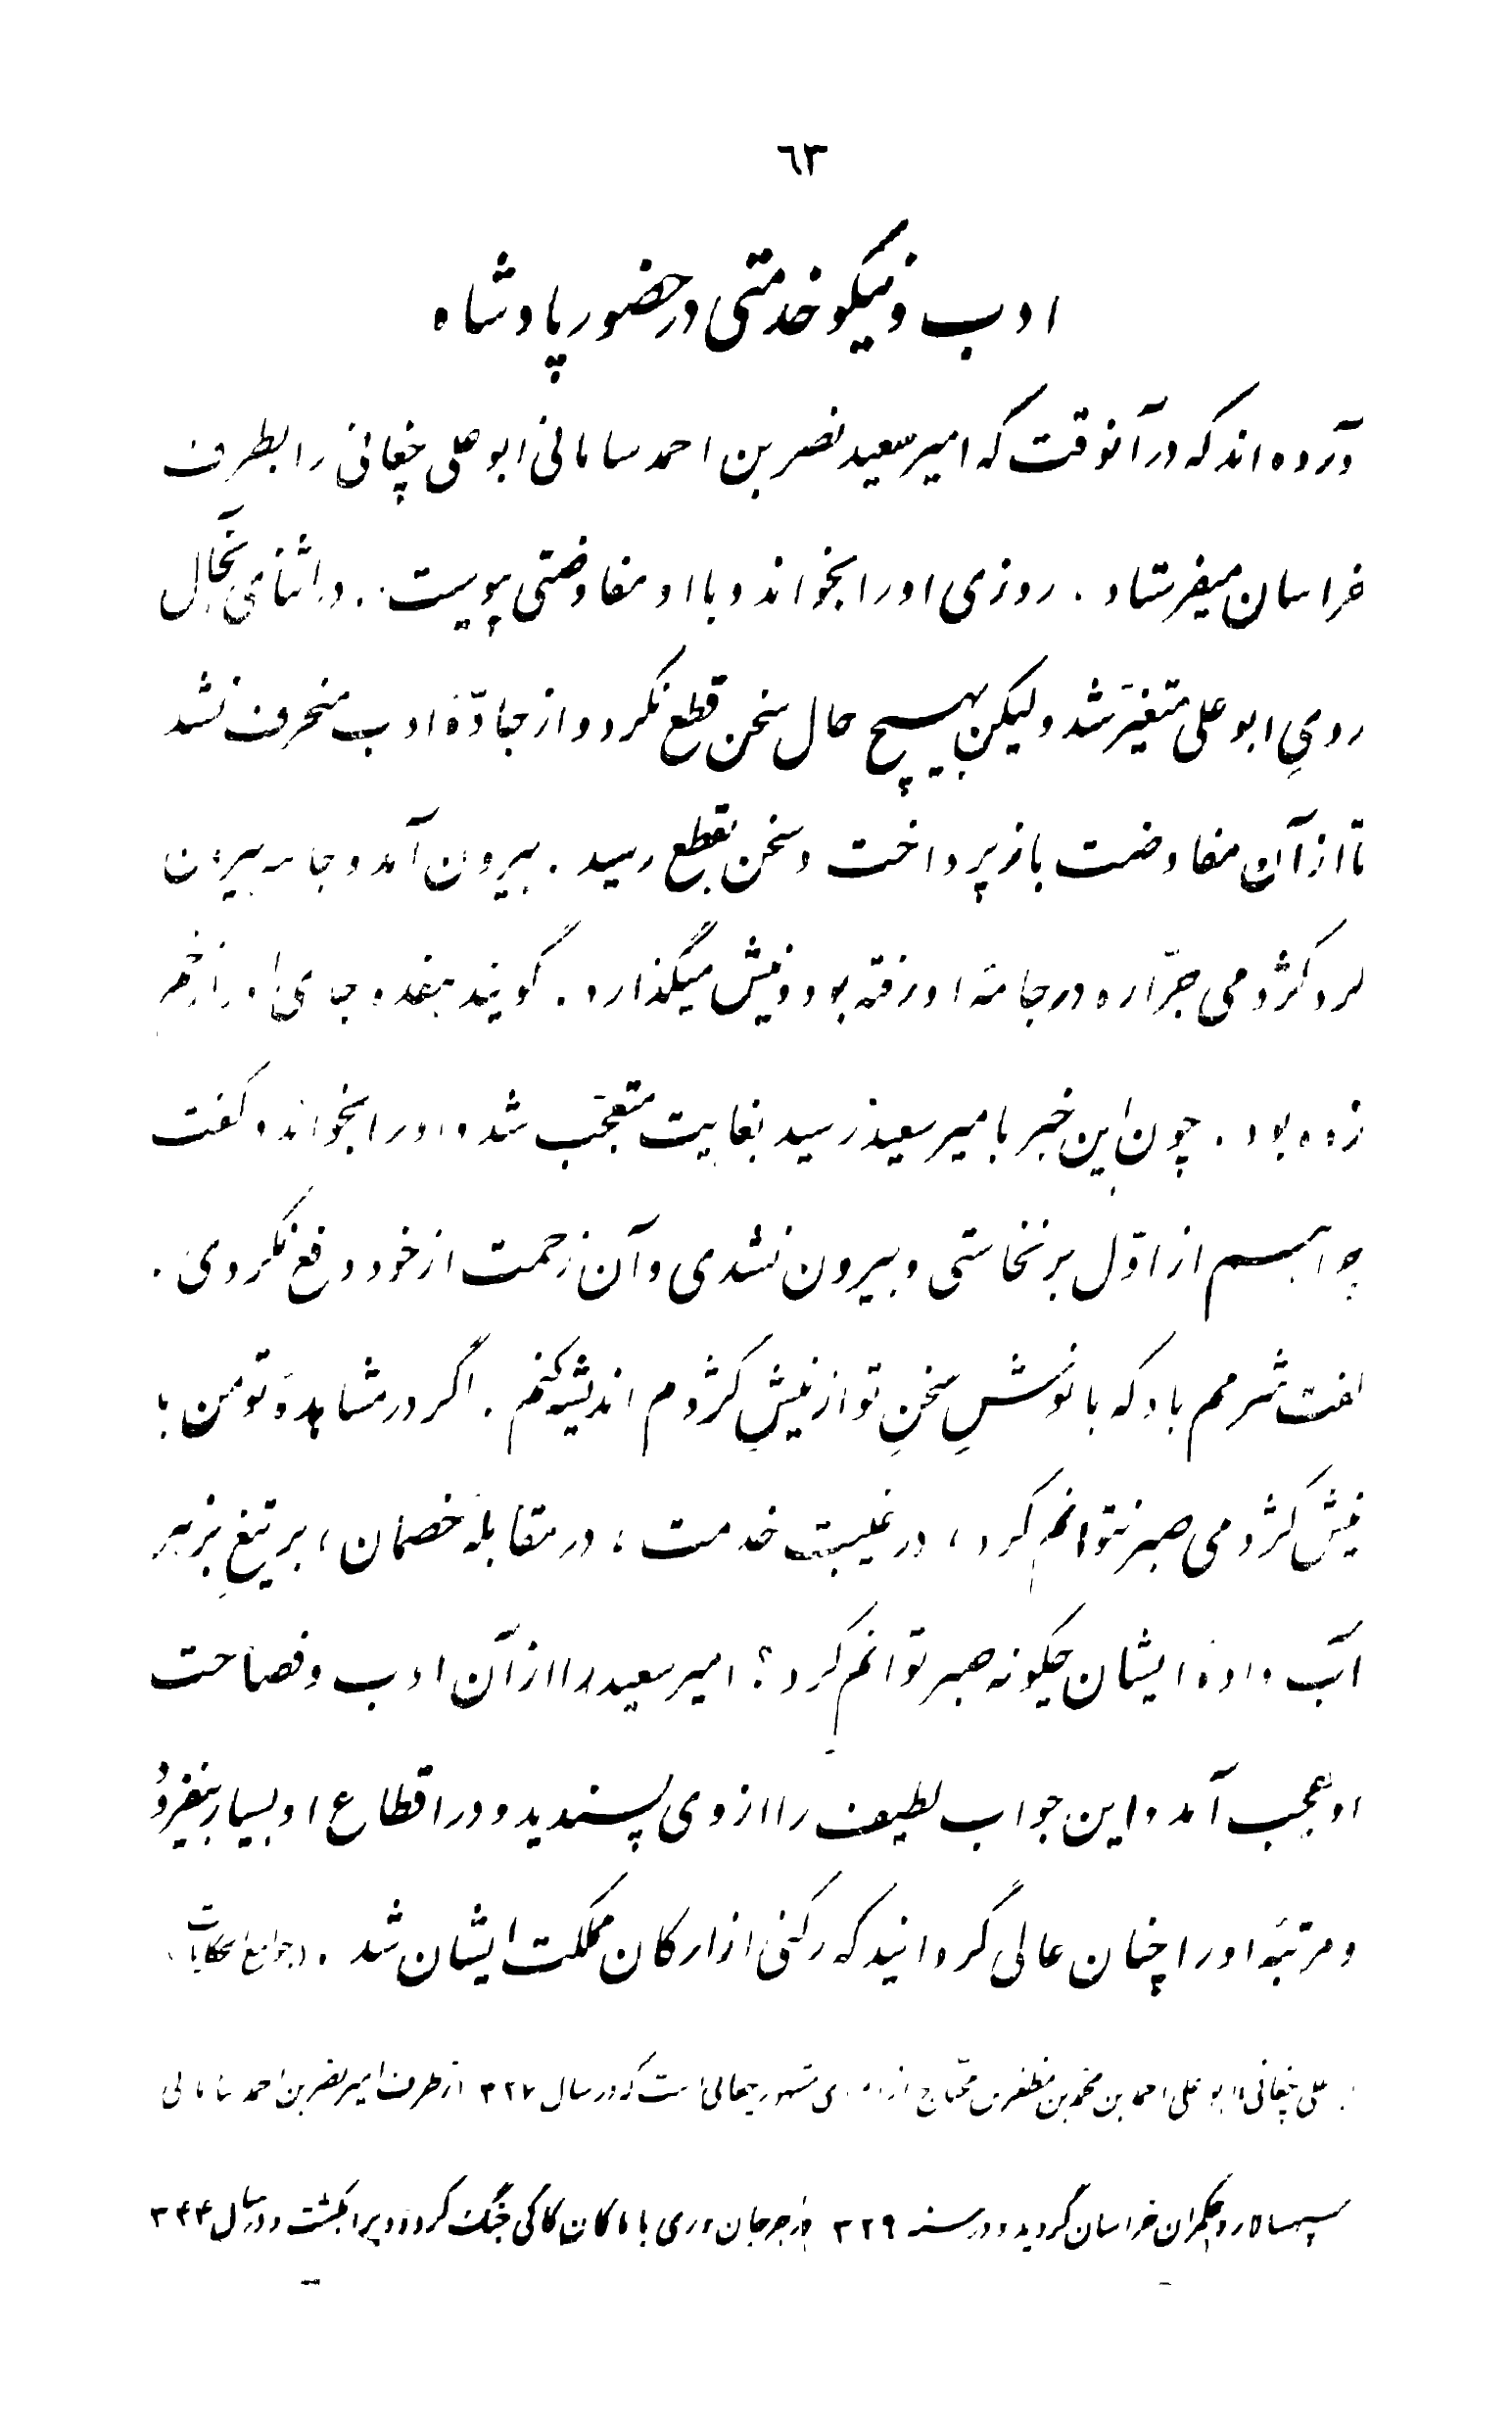 ٦٣
ادب و نیکو خدمتی در حضور پادشاه
آورده‌اند که در آنوقت که امیر سعید نصر بن احمد سامانی ابو علی چغانی را بطرف
خراسان میفرستاد . روزی او را بخواند و با او مفاوضتی پیوست . در اثنای آنحال
رویِ ابو علی متغیّر شد ولیکن بهیچ حال سخن قطع نکرد و از جادّهٔ ادب منحرف نشد
تا از آن مفاوضت باز پرداخت و سخن بقطع رسید . بیرون آمد و جامه بیرون
کرد کژدمی جرّاره در جامهٔ او رفته بود و نیش میگذارد . گویند هفده جای او را زخم
زده بود . چون این خبر بامیر سعید رسید بغایت متعجّب شد و او را بخواند و گفت
چرا هم از اوّل برنخاستی و بیرون نشدی و آن زحمت از خود دفع نکردی .
گفت شرمم باد که با نوشِ سخنِ تو از نیشِ کژدم اندیشه کنم . اگر در مشاهدهٔ تو من با
نیش کژدمی صبر نتوانم کرد ، در غیبت خدمت ، در مقابلهٔ خصمان ، بر تیغِ بزهر
آب دادهٔ ایشان چگونه صبر توانم کرد ؟ امیر سعید را از آن ادب و فصاحت
او عجب آمد و این جواب لطیف را از وی پسندید و در اقطاع او بسیار بیفزود
و مرتبهٔ او را چنان عالی گردانید که رکنی از ارکان مملکت ایشان شد . (جوامع الحکایات)
علی چغانی ابو علی احمد بن محمد بن مظفر بن محتاج از مشهور چغانی است که در سال ۳۲۷ از طرف امیر نصر بن احمد سامانی
سپهسالار و حکمران خراسان گردید و در سنه ۳۲۹ در جرجان و ری با ماکان کاکی جنگ کرد و ویرا بکشت و در سال ۳۴۴